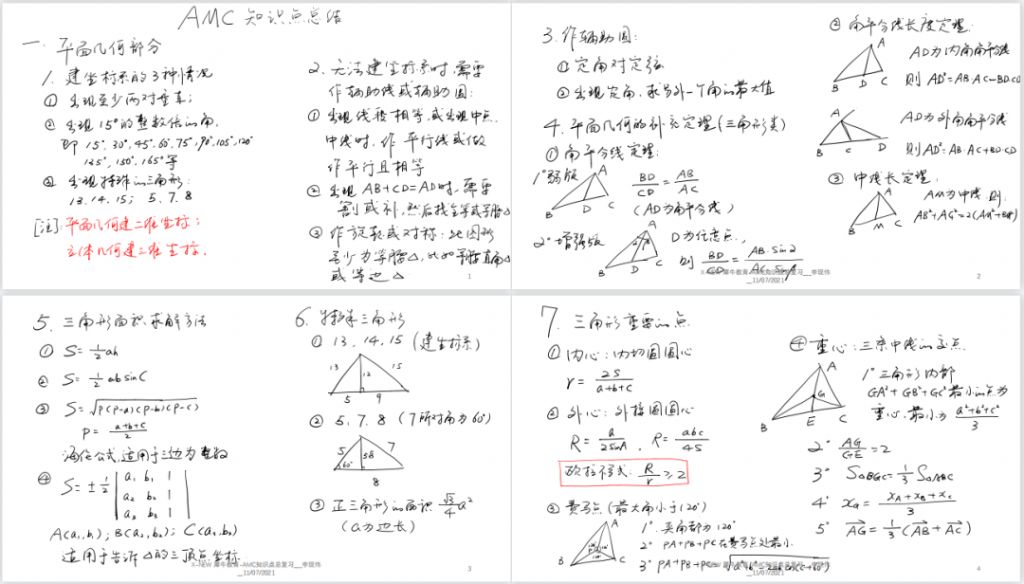 AMC 知识点总结
一. 平面几何部分
1. 建坐标系的3种情况
① 出现至少两对垂直;
② 出现15°的整数倍的角.
即 15°, 30°, 45°, 60°, 75°, 90°, 105°, 120°
135°, 150°, 165° 等
③ 出现特殊的三角形:
13. 14. 15; 5. 7. 8
[注]: 平面几何建二维坐标;
立体几何建三维坐标.
2. 无法建坐标系时, 需要
作辅助线或辅助圆:
① 出现线段相等, 或出现中点.
中线时, 作平行线或做
作平行且相等
② 出现 AB+CD=AD时, 需要
割或补, 然后找全等或等腰△
③ 作旋转或对称: 此图形
至少为等腰△, 比如等腰直角△
或等边△
1
3. 作辅助圆:
① 定角对定弦
② 出现定角, 求另外一个角的最大值
4. 平面几何的补充定理(三角形类)
① 角平分线定理:
1° 弱版
A
B D C
BD/CD = AB/AC
(AD为角平分线)
2° 增强版
A
B D C
D为任意点,
则 BD/CD = AB·sin2/AC·sin1
② 角平分线长度定理.
A
B D C
AD为内角角平分线
则 AD²=AB·AC-BD·CD
A
B C D
AD为外角角平分线
则AD²=AB·AC+BD·CD
③ 中线长定理.
A
B M C
AM为中线 则
AB²+AC²=2(AM²+BM²)
X-NEW 犀牛教育-AMC知识点总复习__李现伟
__11/07/2021
2
5. 三角形面积求解方法
① S=½ah
② S=½absinC
③ S=√p(p-a)(p-b)(p-c)
P = (a+b+c)/2
海伦公式, 适用于三边为整数
④ S=±½ | a₁ b₁ 1 |
| a₂ b₂ 1 |
| a₃ b₃ 1 |
A(a₁,b₁); B(a₂,b₂); C(a₃,b₃)
适用于告诉△的三顶点坐标.
6. 特殊三角形
① 13. 14. 15 (建坐标系)
13 12 15
5 9
② 5. 7. 8 (7所对角为60°)
5 7
60°
8
③ 正三角形的面积 √3/4 a²
(a为边长)
X-NEW 犀牛教育-AMC知识点总复习__李现伟
__11/07/2021
3
7. 三角形重要的点
① 内心: 内切圆圆心
r = 2S/(a+b+c)
② 外心: 外接圆圆心
R = a/2sinA , R = abc/4S
欧拉不等式: R/r ≥ 2
③ 费马点 (最大角小于120°)
A
B C
1° 夹角都为120°
2° PA+PB+PC在费马点处最小.
3° PA+PB+PC=
④ 重心: 三条中线的交点.
A
G
B E C
1° 三角形内部
GA²+GB²+GC²最小的点为
重心. 最小为 (a²+b²+c²)/3
2° AG/GE=2
3° S△BGC=⅓S△ABC
4° x_G = (x_A+x_B+x_C)/3
5° AG=⅓(AB+AC)
X-NEW 犀牛教育-AMC知识点总复习__李现伟
__11/07/2021
4